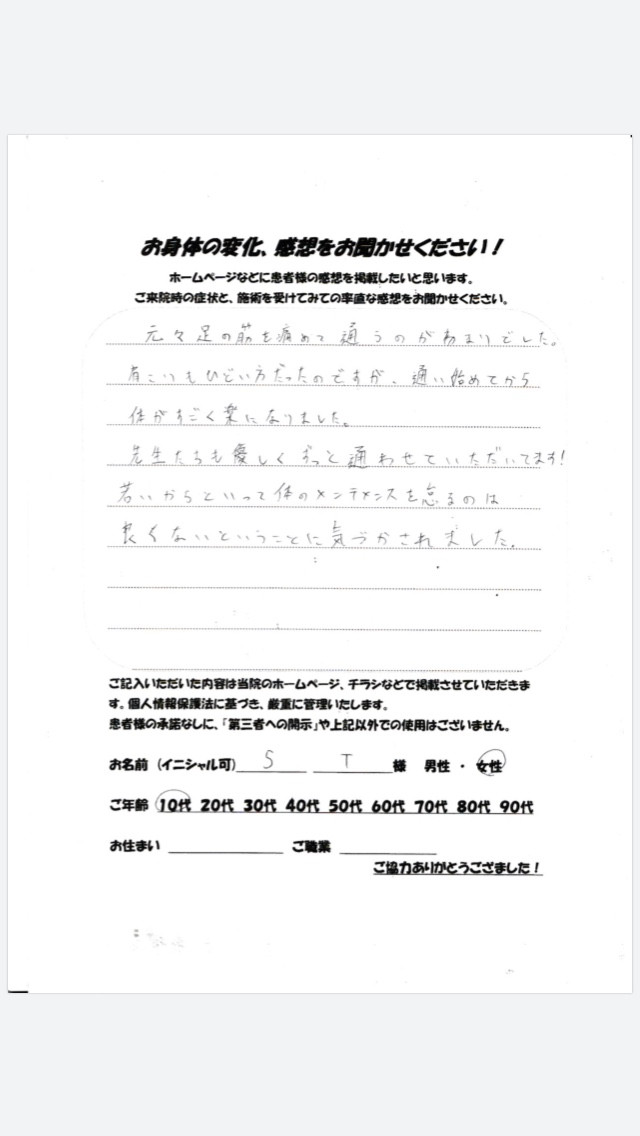 お身体の変化、感想をお聞かせください！
ホームページなどに患者様の感想を掲載したいと思います。
ご来院時の症状と、施術を受けてみての率直な感想をお聞かせください。
元々足の筋を痛めて通うのが始まりでした。
肩こりもひどい方だったのですが、通い始めてから
体がすごく楽になりました。
先生たちも優しくずっと通わせていただいてます!
若いからといって体のメンテメンスを怠るのは
良くないということに気づかされました。
ご記入いただいた内容は当院のホームページ、チラシなどで掲載させていただきま
す。個人情報保護法に基づき、厳重に管理いたします。
患者様の承諾なしに、「第三者への開示」や上記以外での使用はございません。
お名前（イニシャル可） S T 様 男性 ・ 女性
ご年齢 10代 20代 30代 40代 50代 60代 70代 80代 90代
お住まい ご職業
ご協力ありがとうござました！